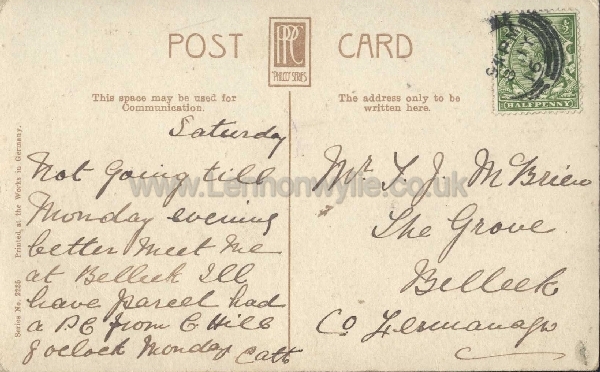 POST CARD
PPC
PHILCO SERIES
HALFPENNY
This space may be used for
Communication.
The address only to be
written here.
Saturday
Not going till
Monday evening
better meet me
at Belleek Ill
have parcel had
a PC from C Hill
8 oclock Monday Cath
Mr T. J. McBrien
The Grove
Belleek
Co Fermanagh
Series No. 2285 Printed at the Works in Germany.
www.Lennonwylie.co.uk